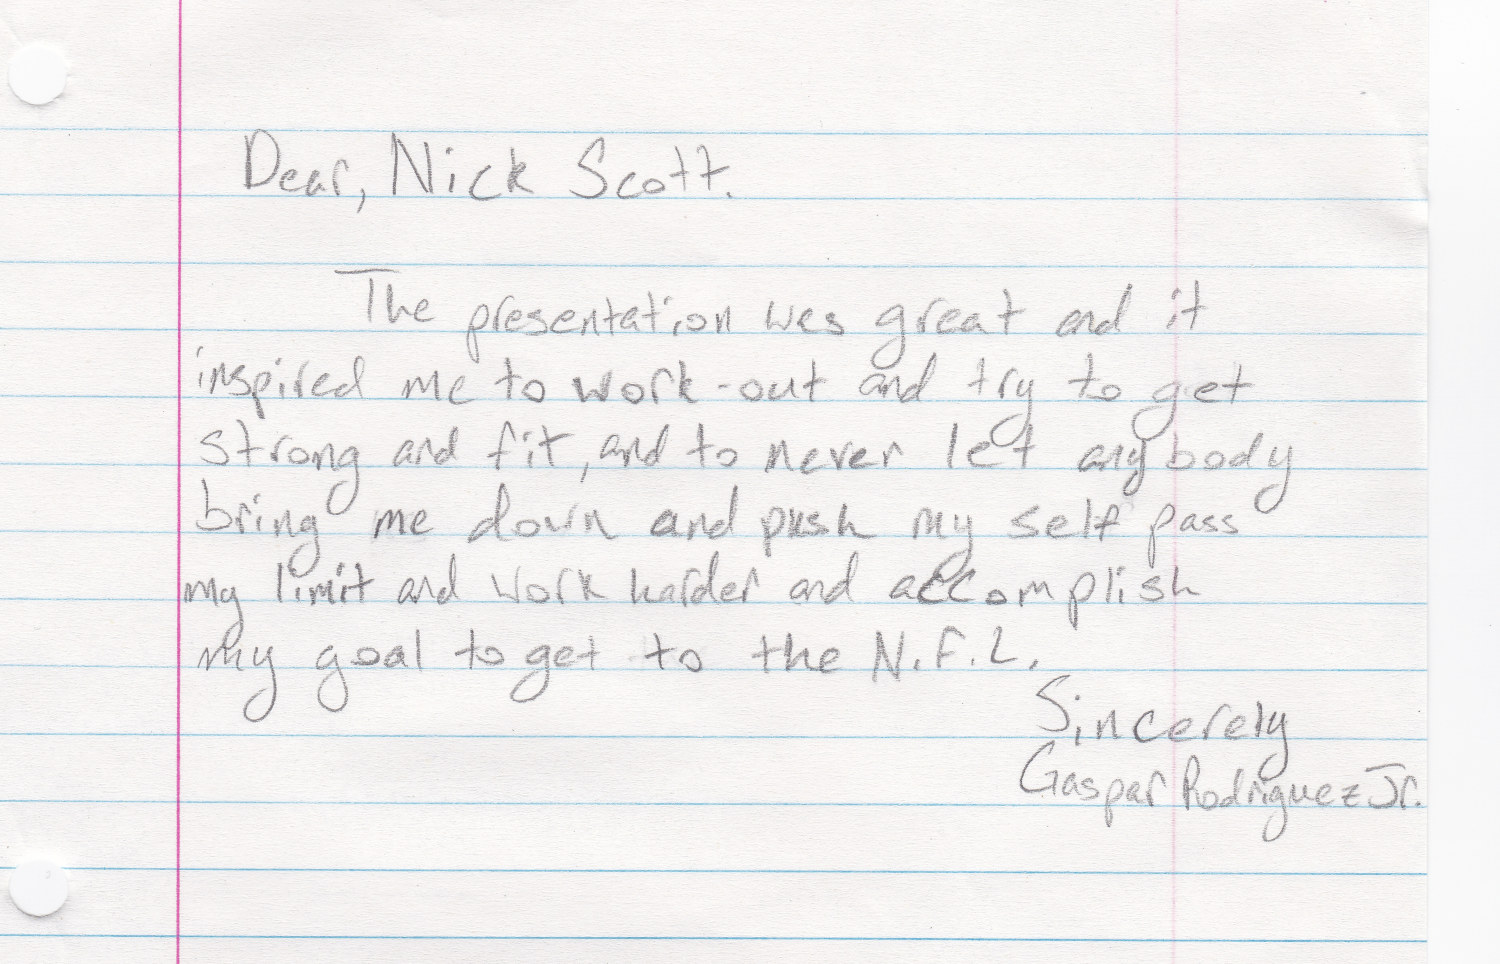 Dear, Nick Scott.
The presentation was great and it
inspired me to work-out and try to get
strong and fit, and to never let anybody
bring me down and push my self pass
my limit and work harder and accomplish
my goal to get to the N.F.L.
Sincerely
Gaspar Rodriguez Jr.